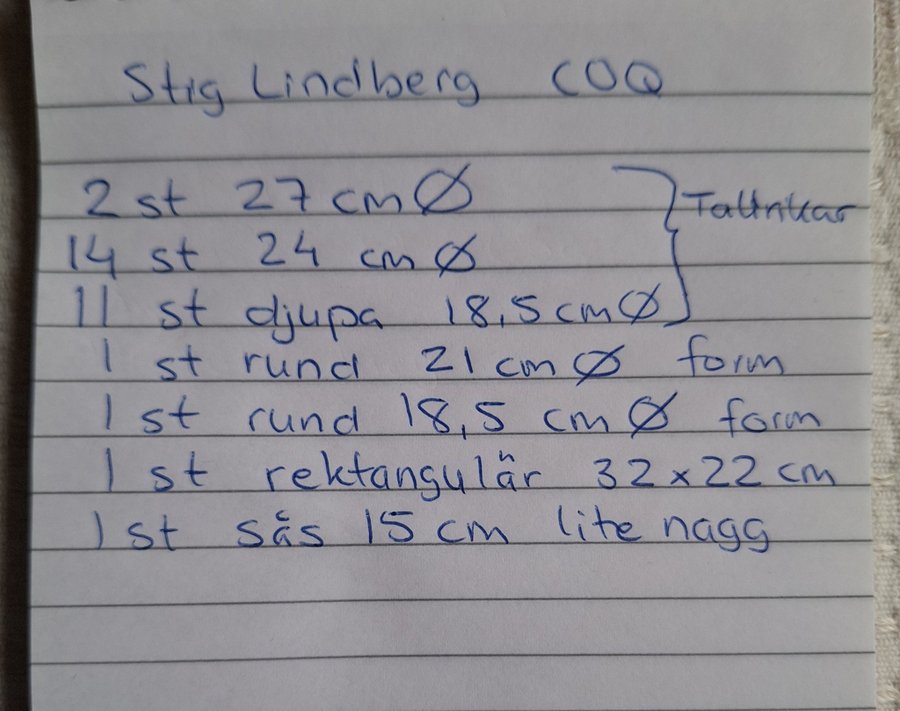 Stig Lindberg COQ
2 st 27 cm Ø
Tallrikar
14 st 24 cm Ø
11 st djupa 18,5 cm Ø
1 st rund 21 cm Ø form
1 st rund 18,5 cm Ø form
1 st rektangulär 32 x 22 cm
1 st sås 15 cm lite nagg